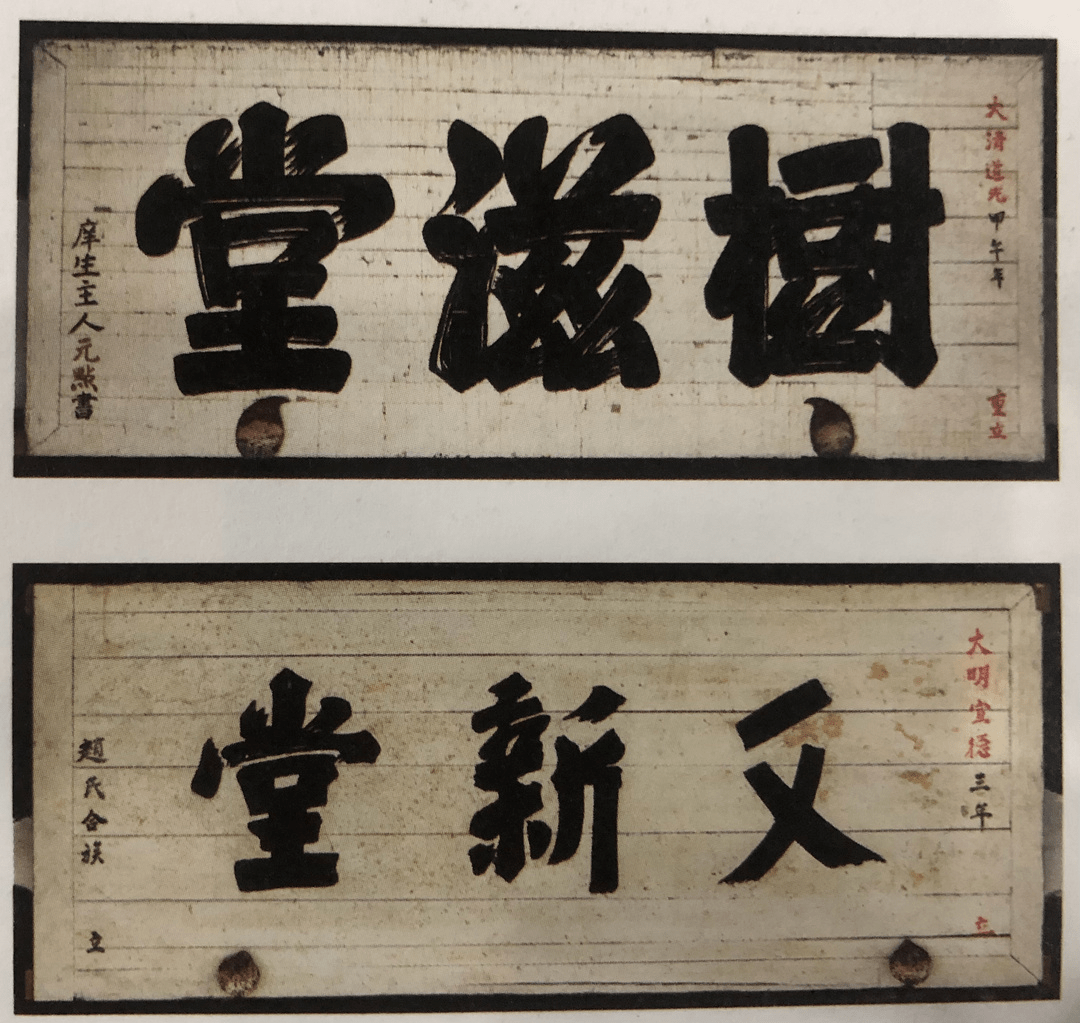 大清道光甲午年 重立
樹滋堂
庠生主人元點書
大明宣德三年 立
又新堂
趙氏合族 立